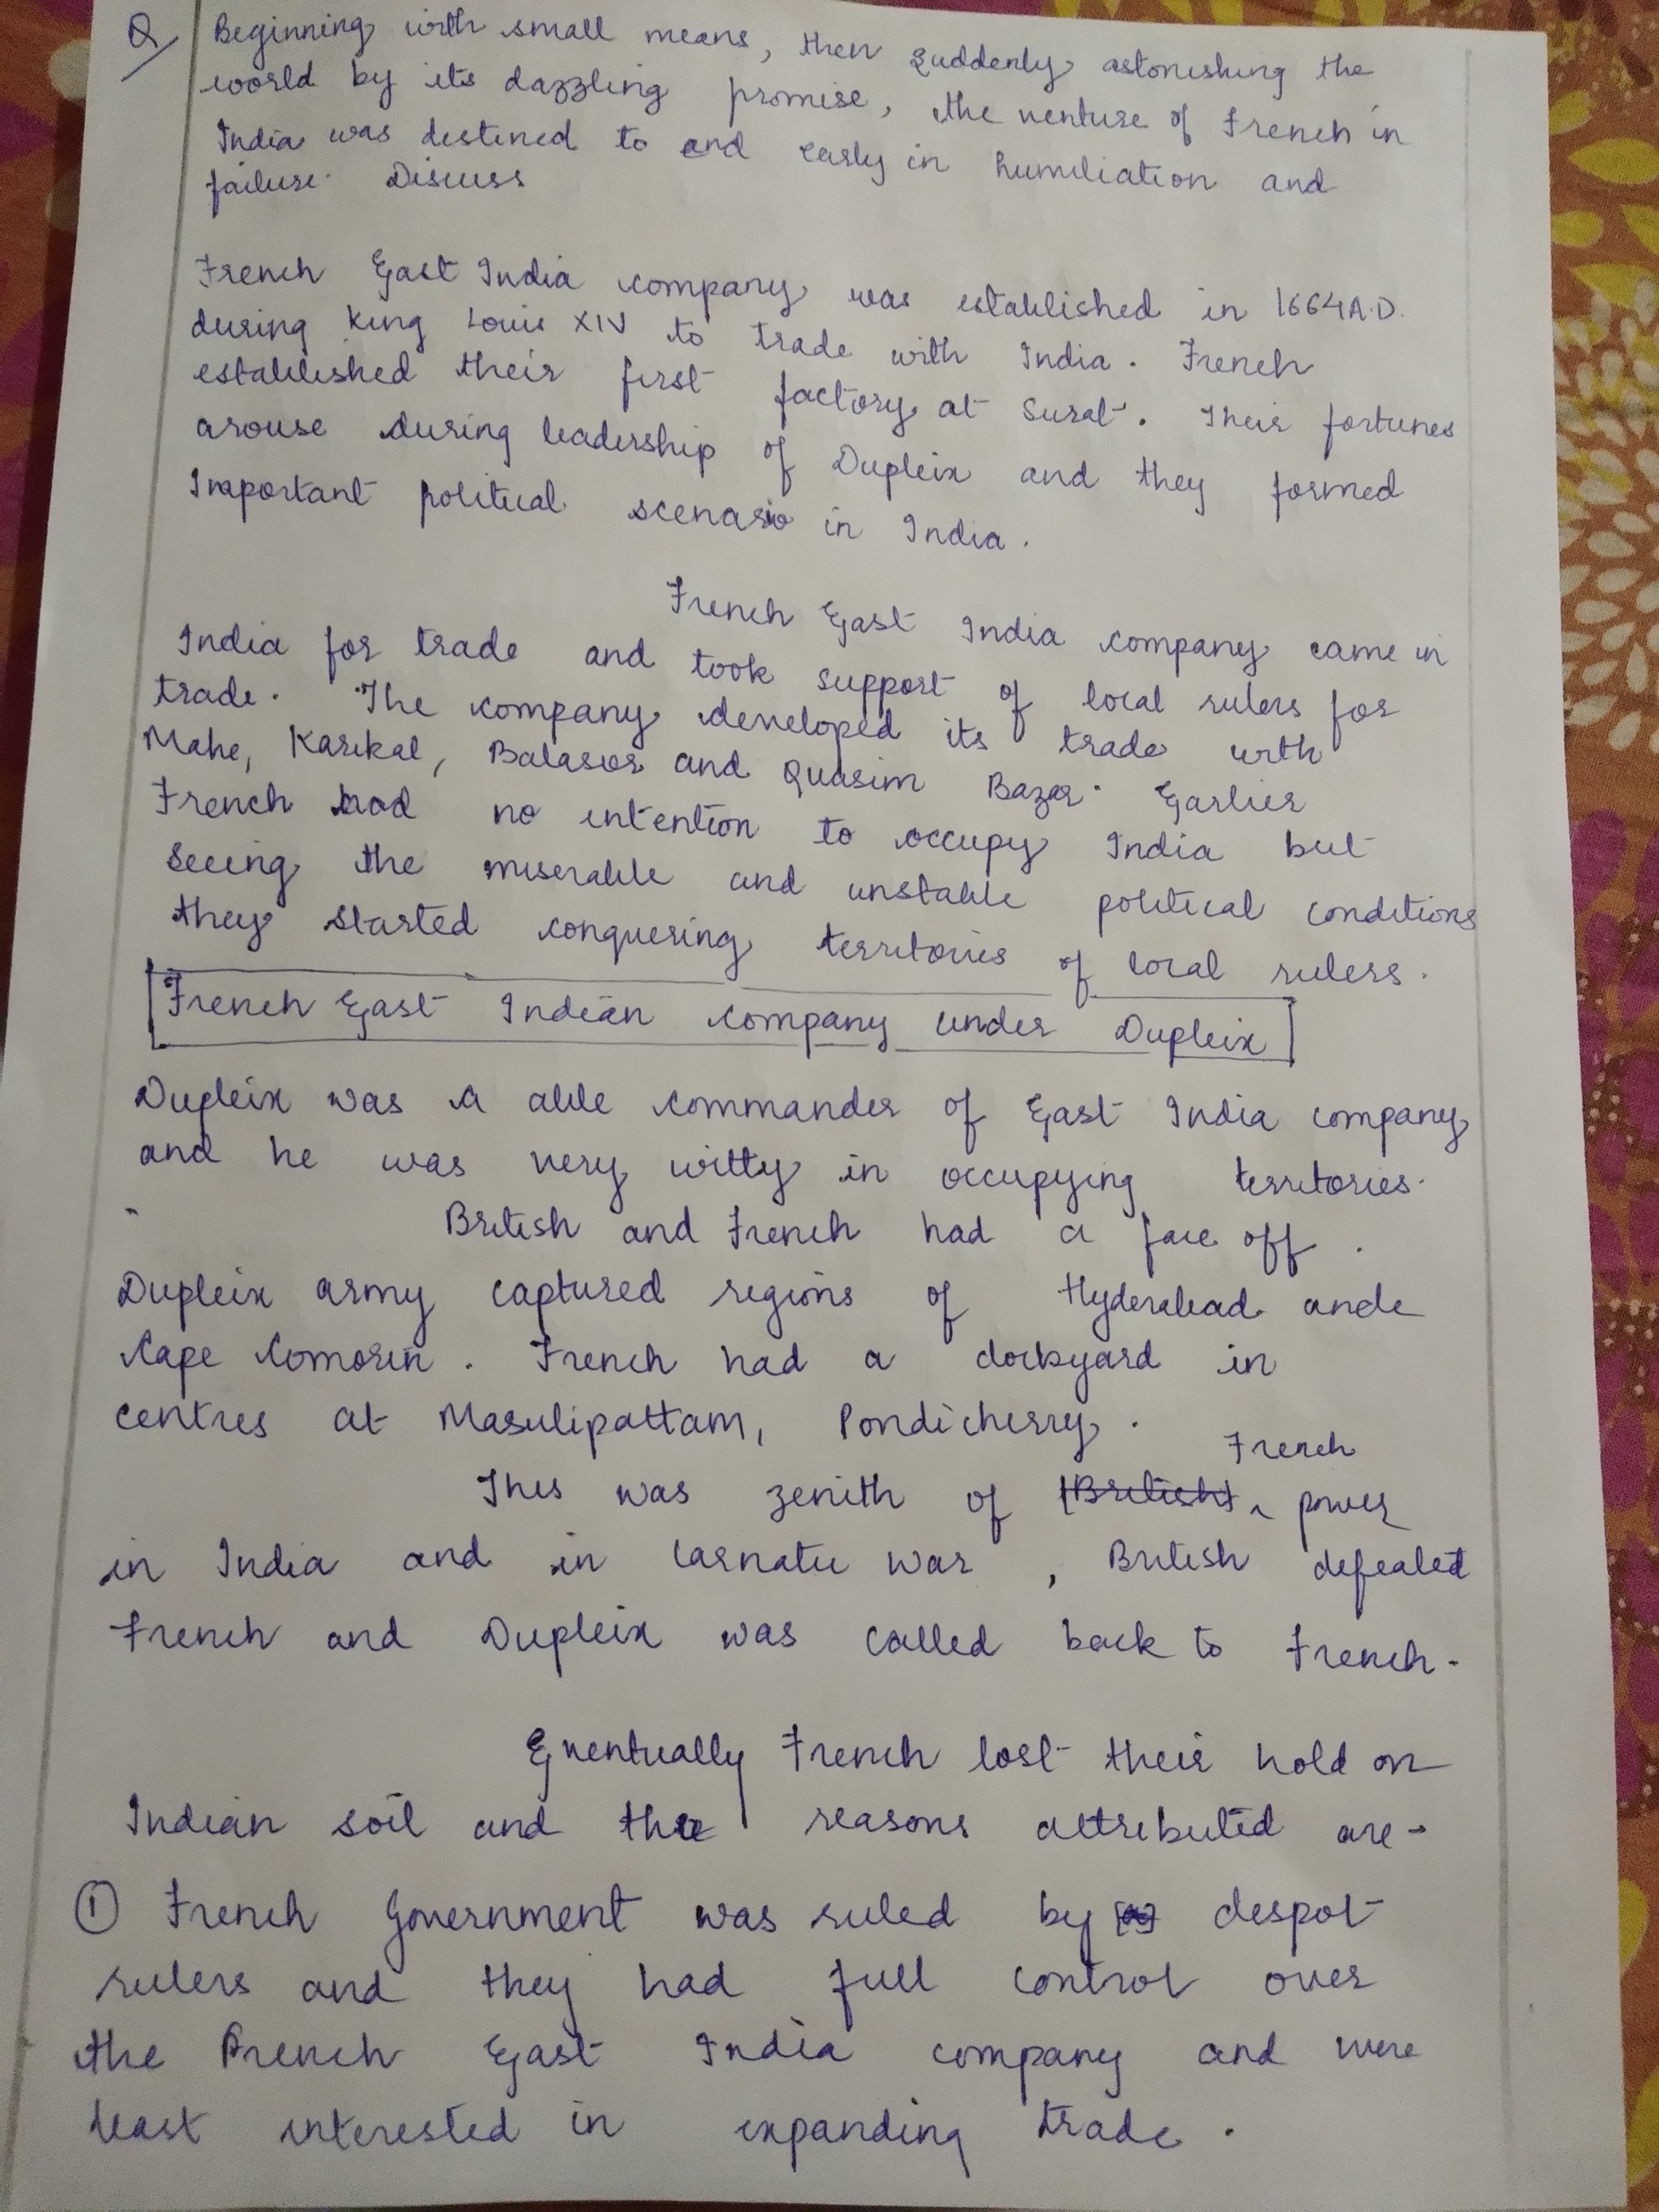 Q/ Beginning with small means, then suddenly astonishing the
world by its dazzling promise, the venture of French in
India was destined to end early in humiliation and
failure. Discuss
French East India company was established in 1664 A.D.
during King Louis XIV to trade with India. French
established their first factory at Surat. Their fortunes
arouse during leadership of Dupleix and they formed
Important political scenario in India.
French East India company came in
India for trade and took support of local rulers for
trade. The company developed its trade with
Mahe, Karikal, Balasor and Quasim Bazar. Earlier
French had no intention to occupy India but
seeing the miserable and unstable political conditions
they started conquering territories of local rulers.
French East Indian company under Dupleix
Dupleix was a able commander of East India company
and he was very witty in occupying territories.
British and French had a face off.
Dupleix army captured regions of Hyderabad and
Cape Comorin. French had a dockyard in
centres at Masulipattam, Pondicherry.
French
This was zenith of (British) ^ power
in India and in Carnatic war, British defeated
French and Dupleix was called back to French.
Eventually French lost their hold on
Indian soil and the reasons attributed are -
① French Government was ruled by despot
rulers and they had full control over
the French East India company and were
least interested in expanding trade.